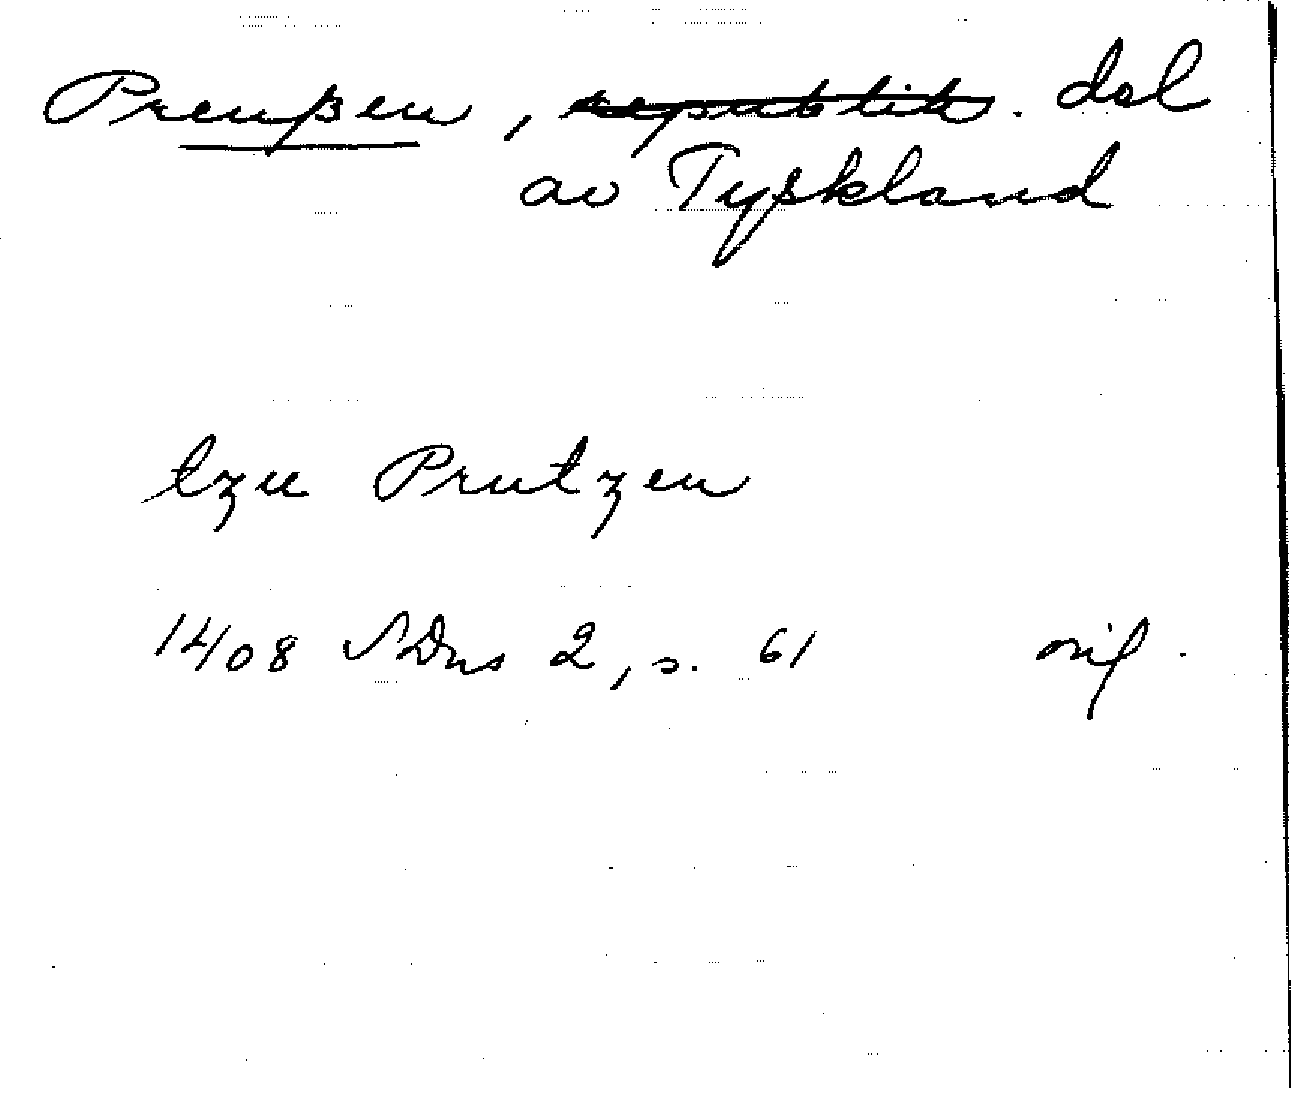 Preußen, republik. del
av Tyskland
tzu Prutzen
1408 SDns 2, s. 61 orig.